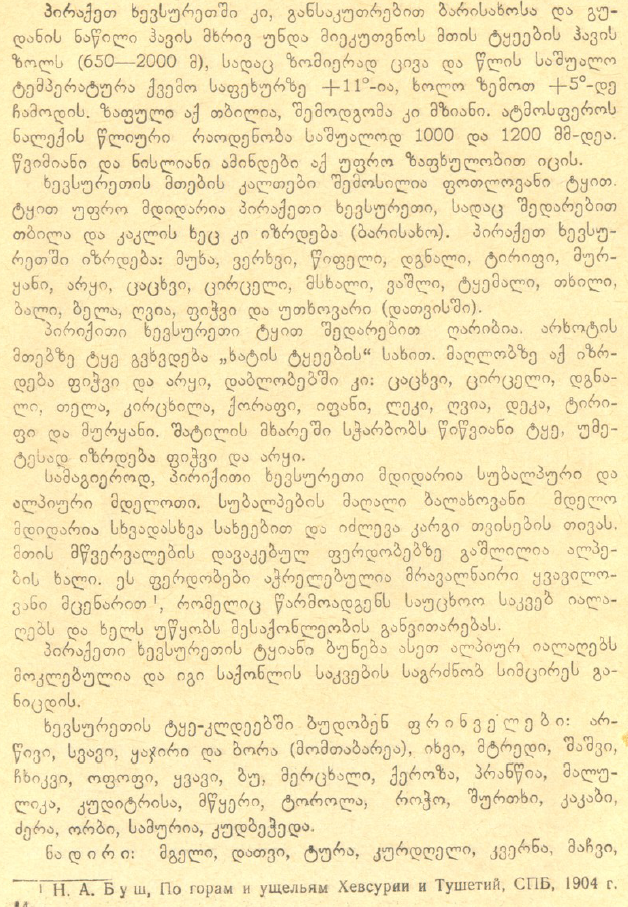 პირაქეთ ხევსურეთში კი, განსაკუთრებით ბარისახოსა და გუ-
დანის ნაწილი ჰავის მხრივ უნდა მიეკუთვნოს მთის ტყეების ჰავის
ზოლს (650—2000 მ), სადაც ზომიერად ცივა და წლის საშუალო
ტემპერატურა ქვემო საფეხურზე +11°-ია, ხოლო ზემოთ +5°-დე
ჩამოდის. ზაფული აქ თბილია, შემოდგომა კი მზიანი. ატმოსფეროს
ნალექის წლიური რაოდენობა საშუალოდ 1000 და 1200 მმ-დეა.
წვიმიანი და ნისლიანი ამინდები აქ უფრო ზაფხულობით იცის.
ხევსურეთის მთების კალთები შემოსილია ფოთლოვანი ტყით.
ტყით უფრო მდიდარია პირაქეთი ხევსურეთი, სადაც შედარებით
თბილა და კაკლის ხეც კი იზრდება (ბარისახო). პირაქეთ ხევსუ-
რეთში იზრდება: მუხა, ვერხვი, წიფელი, დგნალი, ტირიფი, მურ-
ყანი, არყი, ცაცხვი, ცირცელი, მსხალი, ვაშლი, ტყემალი, თხილი,
ბალი, ბელა, ღვია, ფიჭვი და უთხოვარი (დათვისში).
პირიქითი ხევსურეთი ტყით შედარებით ღარიბია. არხოტის
მთებზე ტყე გვხვდება „ხატის ტყეების“ სახით. მაღლობზე აქ იზრ-
დება ფიჭვი და არყი, დაბლობებში კი: ცაცხვი, ცირცელი, დგნა-
ლი, თელა, კირცხილა, ქორაფი, იფანი, ლეკი, ღვია, დეკა, ტირი-
ფი და მურყანი. შატილის მხარეში სჭარბობს წიწვიანი ტყე, უმე-
ტესად იზრდება ფიჭვი და არყი.
სამაგიეროდ, პირიქითი ხევსურეთი მდიდარია სუბალპური და
ალპიური მდელოთი. სუბალპების მაღალი ბალახოვანი მდელო
მდიდარია სხვადასხვა სახეებით და იძლევა კარგი თვისების თივას.
მთის მწვერვალების დავაკებულ ფერდობებზე გაშლილია ალპე-
ბის ხალი. ეს ფერდობები აჭრელებულია მრავალნაირი ყვავილო-
ვანი მცენარით¹, რომელიც წარმოადგენს საუცხოო საკვებ იალა-
ღებს და ხელს უწყობს მესაქონლეობის განვითარებას.
პირაქეთი ხევსურეთის ტყიანი ბუნება ასეთ ალპიურ იალაღებს
მოკლებულია და იგი საქონლის საკვების საგრძნობ სიმცირეს გა-
ნიცდის.
ხევსურეთის ტყე-კლდეებში ბუდობენ ფრინველები: არ-
წივი, სვავი, ყაჯირი და ბორა (მომთაბარეა), იხვი, მტრედი, შაშვი,
ჩხიკვი, ოფოფი, ყვავი, ბუ, მერცხალი, ქეროზა, პრანწია, მალუ-
ლიკა, კუდიტრისა, მწყერი, ტოროლა, როჭო, შურთხი, კაკაბი,
ძერა, ორბი, სამურია, კუდბეჭედა.
ნადირი: მგელი, დათვი, ტურა, კურდღელი, კვერნა, მაჩვი,
¹ Н. А. Буш, По горам и ущельям Хевсурии и Тушетий, СПБ, 1904 г.